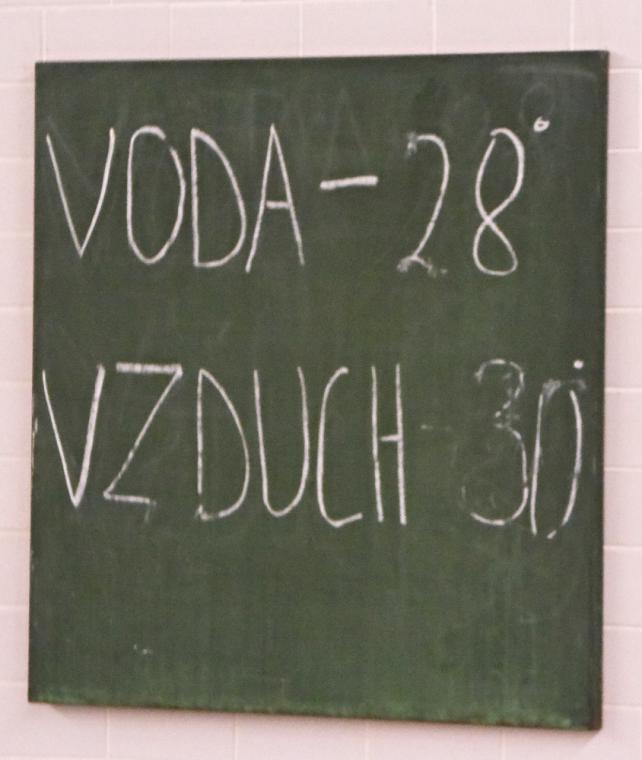 VODA - 28°
VZDUCH - 30°